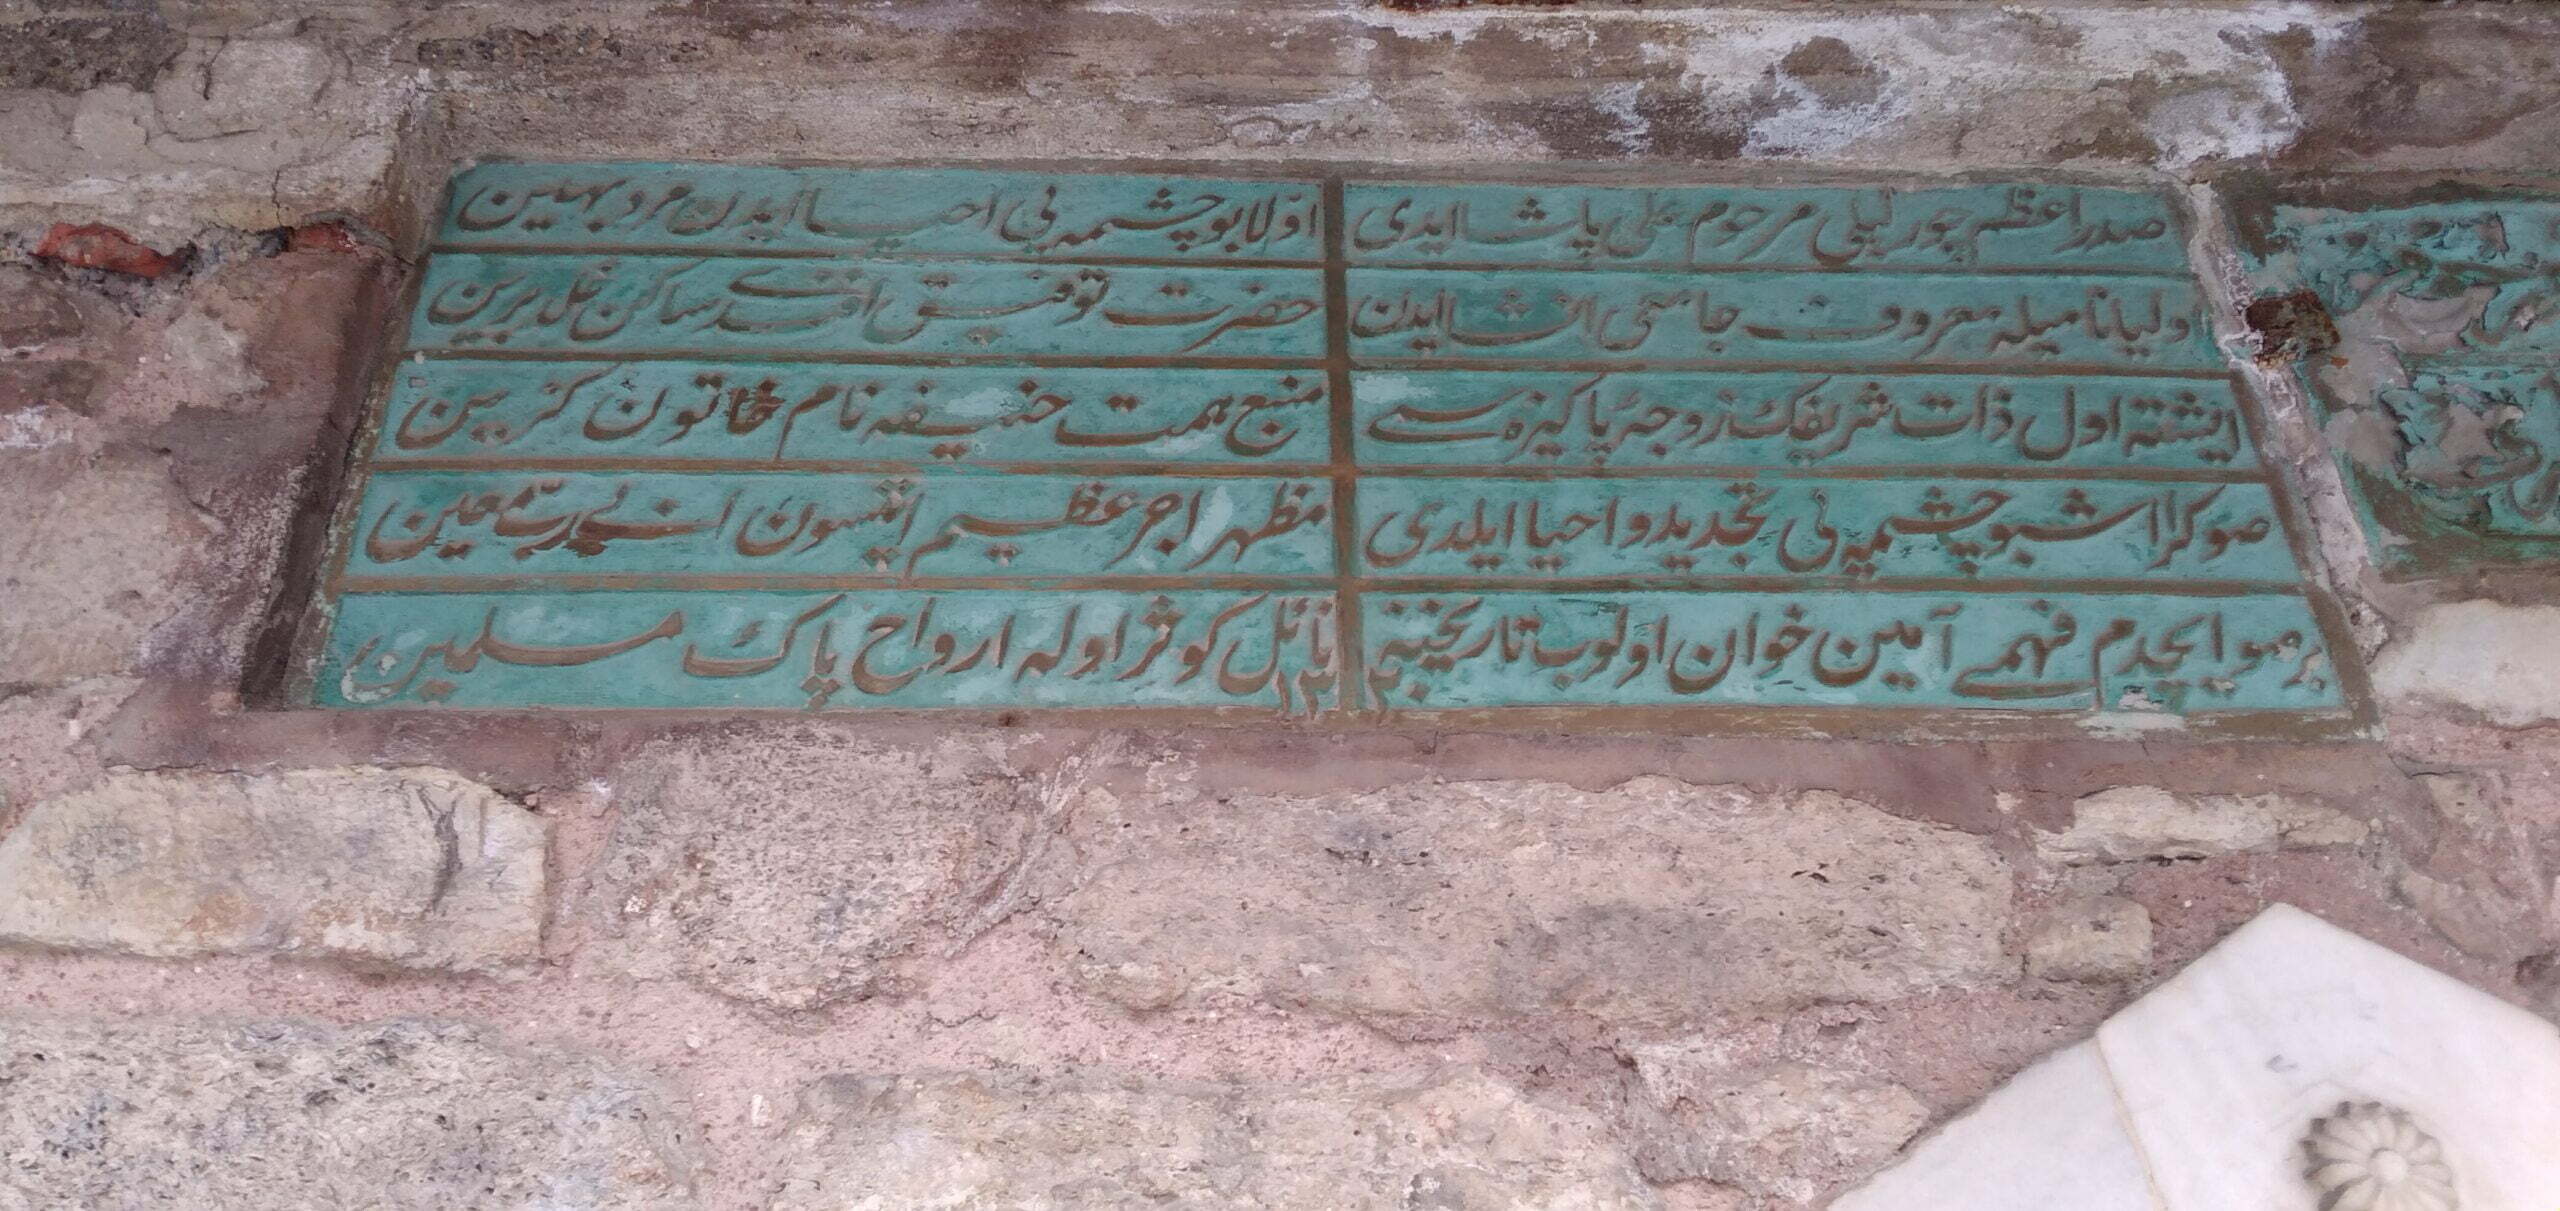 صدر اعظم چورلیلی مرحوم علی پاشا ایدی
اولا بو چشمه یی احیا ایدن مرد بهین
اولیا نامیله معروف جامعی انشا ایدن
حضرت توفیق افندی ساکن خلد برین
ایشته اول ذات شریفك زوجۀ پاکیزه سی
منبع همت حنیفه نام خاتون گزین
صوکرا اشبو چشمه یی تجدید و احیا ایلدی
مظهر اجر عظیم ایتسون انی رب معین
بر صو ایچدم فهمی آمین خوان اولوب تاریخنه
نائل کوثر اوله ارواح پاك مسلمین